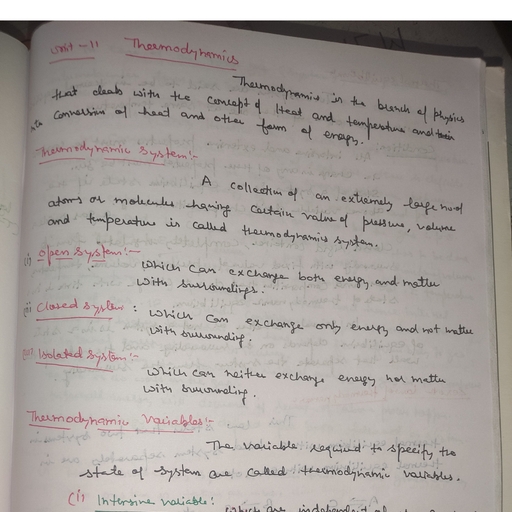 Unit - 11 Thermodynamics
Thermodynamics is the branch of physics
that deals with the concept of Heat and temperature and their
conversion of heat and other form of energy.
Thermodynamic System:-
A collection of an extremely large no of
atoms or molecules having certain value of pressure, volume
and temperature is called thermodynamic system.
(i) Open System:-
Which can exchange both energy and matter
with surroundings.
(ii) Closed System:
Which can exchange only energy and not matter
with surrounding.
(iii) Isolated System:-
Which can neither exchange energy nor matter
with surrounding.
Thermodynamic Variables:-
The variable required to specify the
state of system are called thermodynamic variables.
(i) Intensive variable: which are independent of